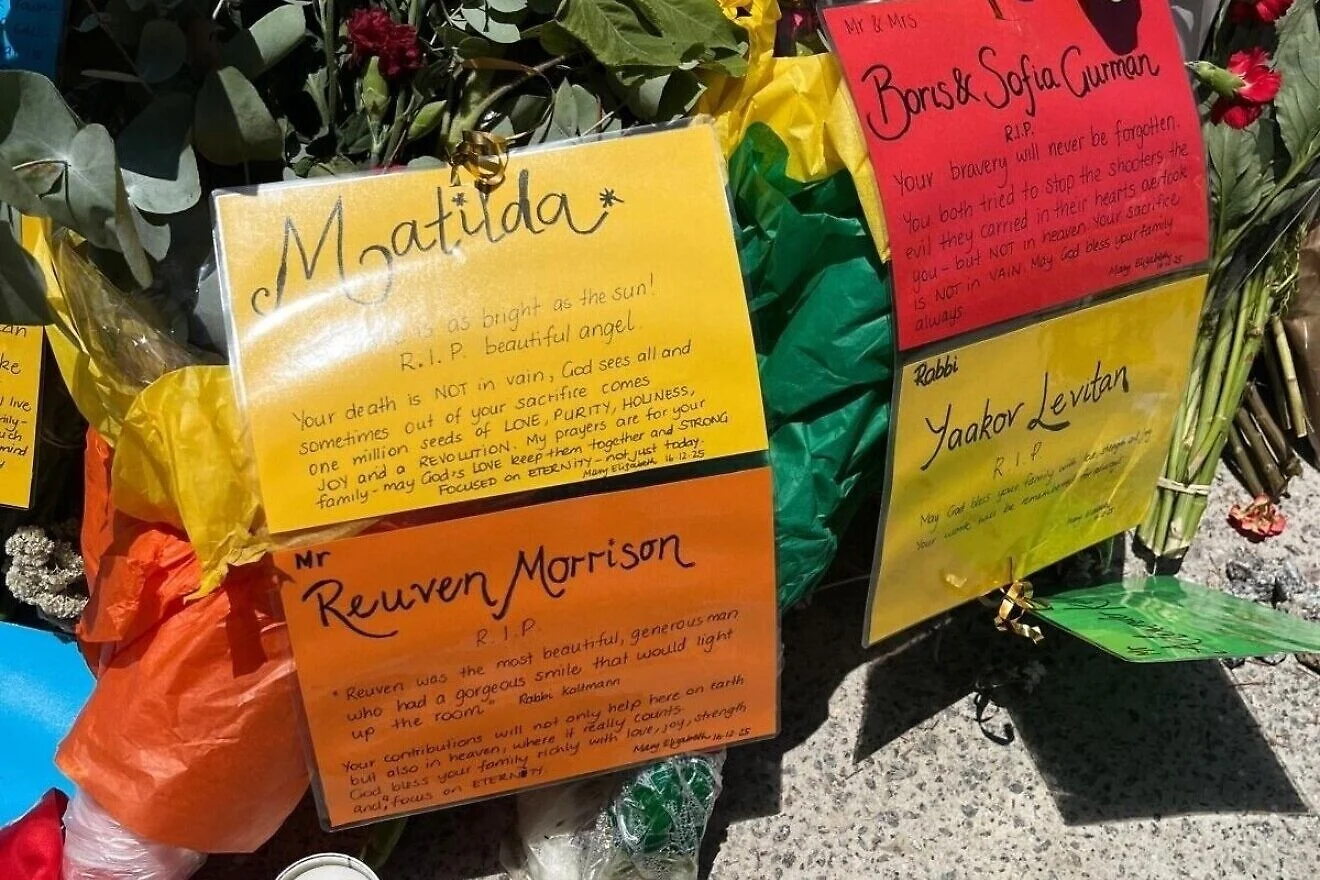 Matilda
as bright as the sun!
R.I.P. beautiful angel.
Your death is NOT in vain, God sees all and
sometimes out of your sacrifice comes
one million seeds of LOVE, PURITY, HOLINESS,
JOY and a REVOLUTION. My prayers are for your
family - may God's LOVE keep them together and STRONG
FOCUSED on ETERNITY - not just today.
Mary Elizabeth 16.12.25
Mr
Reuven Morrison
R.I.P.
"Reuven was the most beautiful, generous man
who had a gorgeous smile, that would light
up the room." Rabbi Koltmann
Your contributions will not only help here on earth
but also in heaven, where it really counts.
God bless your family richly with love, joy, strength
and, focus on ETERNITY.
Mary Elizabeth 16.12.25
Mr & Mrs
Boris & Sofia Gurman
R.I.P.
Your bravery will never be forgotten.
You both tried to stop the shooters the
evil they carried in their hearts overtook
you - but NOT in heaven. Your sacrifice
is NOT in VAIN May God bless your family
always
Mary Elizabeth
16.12.25
Rabbi
Yaakov Levitan
R.I.P
May God bless your family with
Your work will be remembered